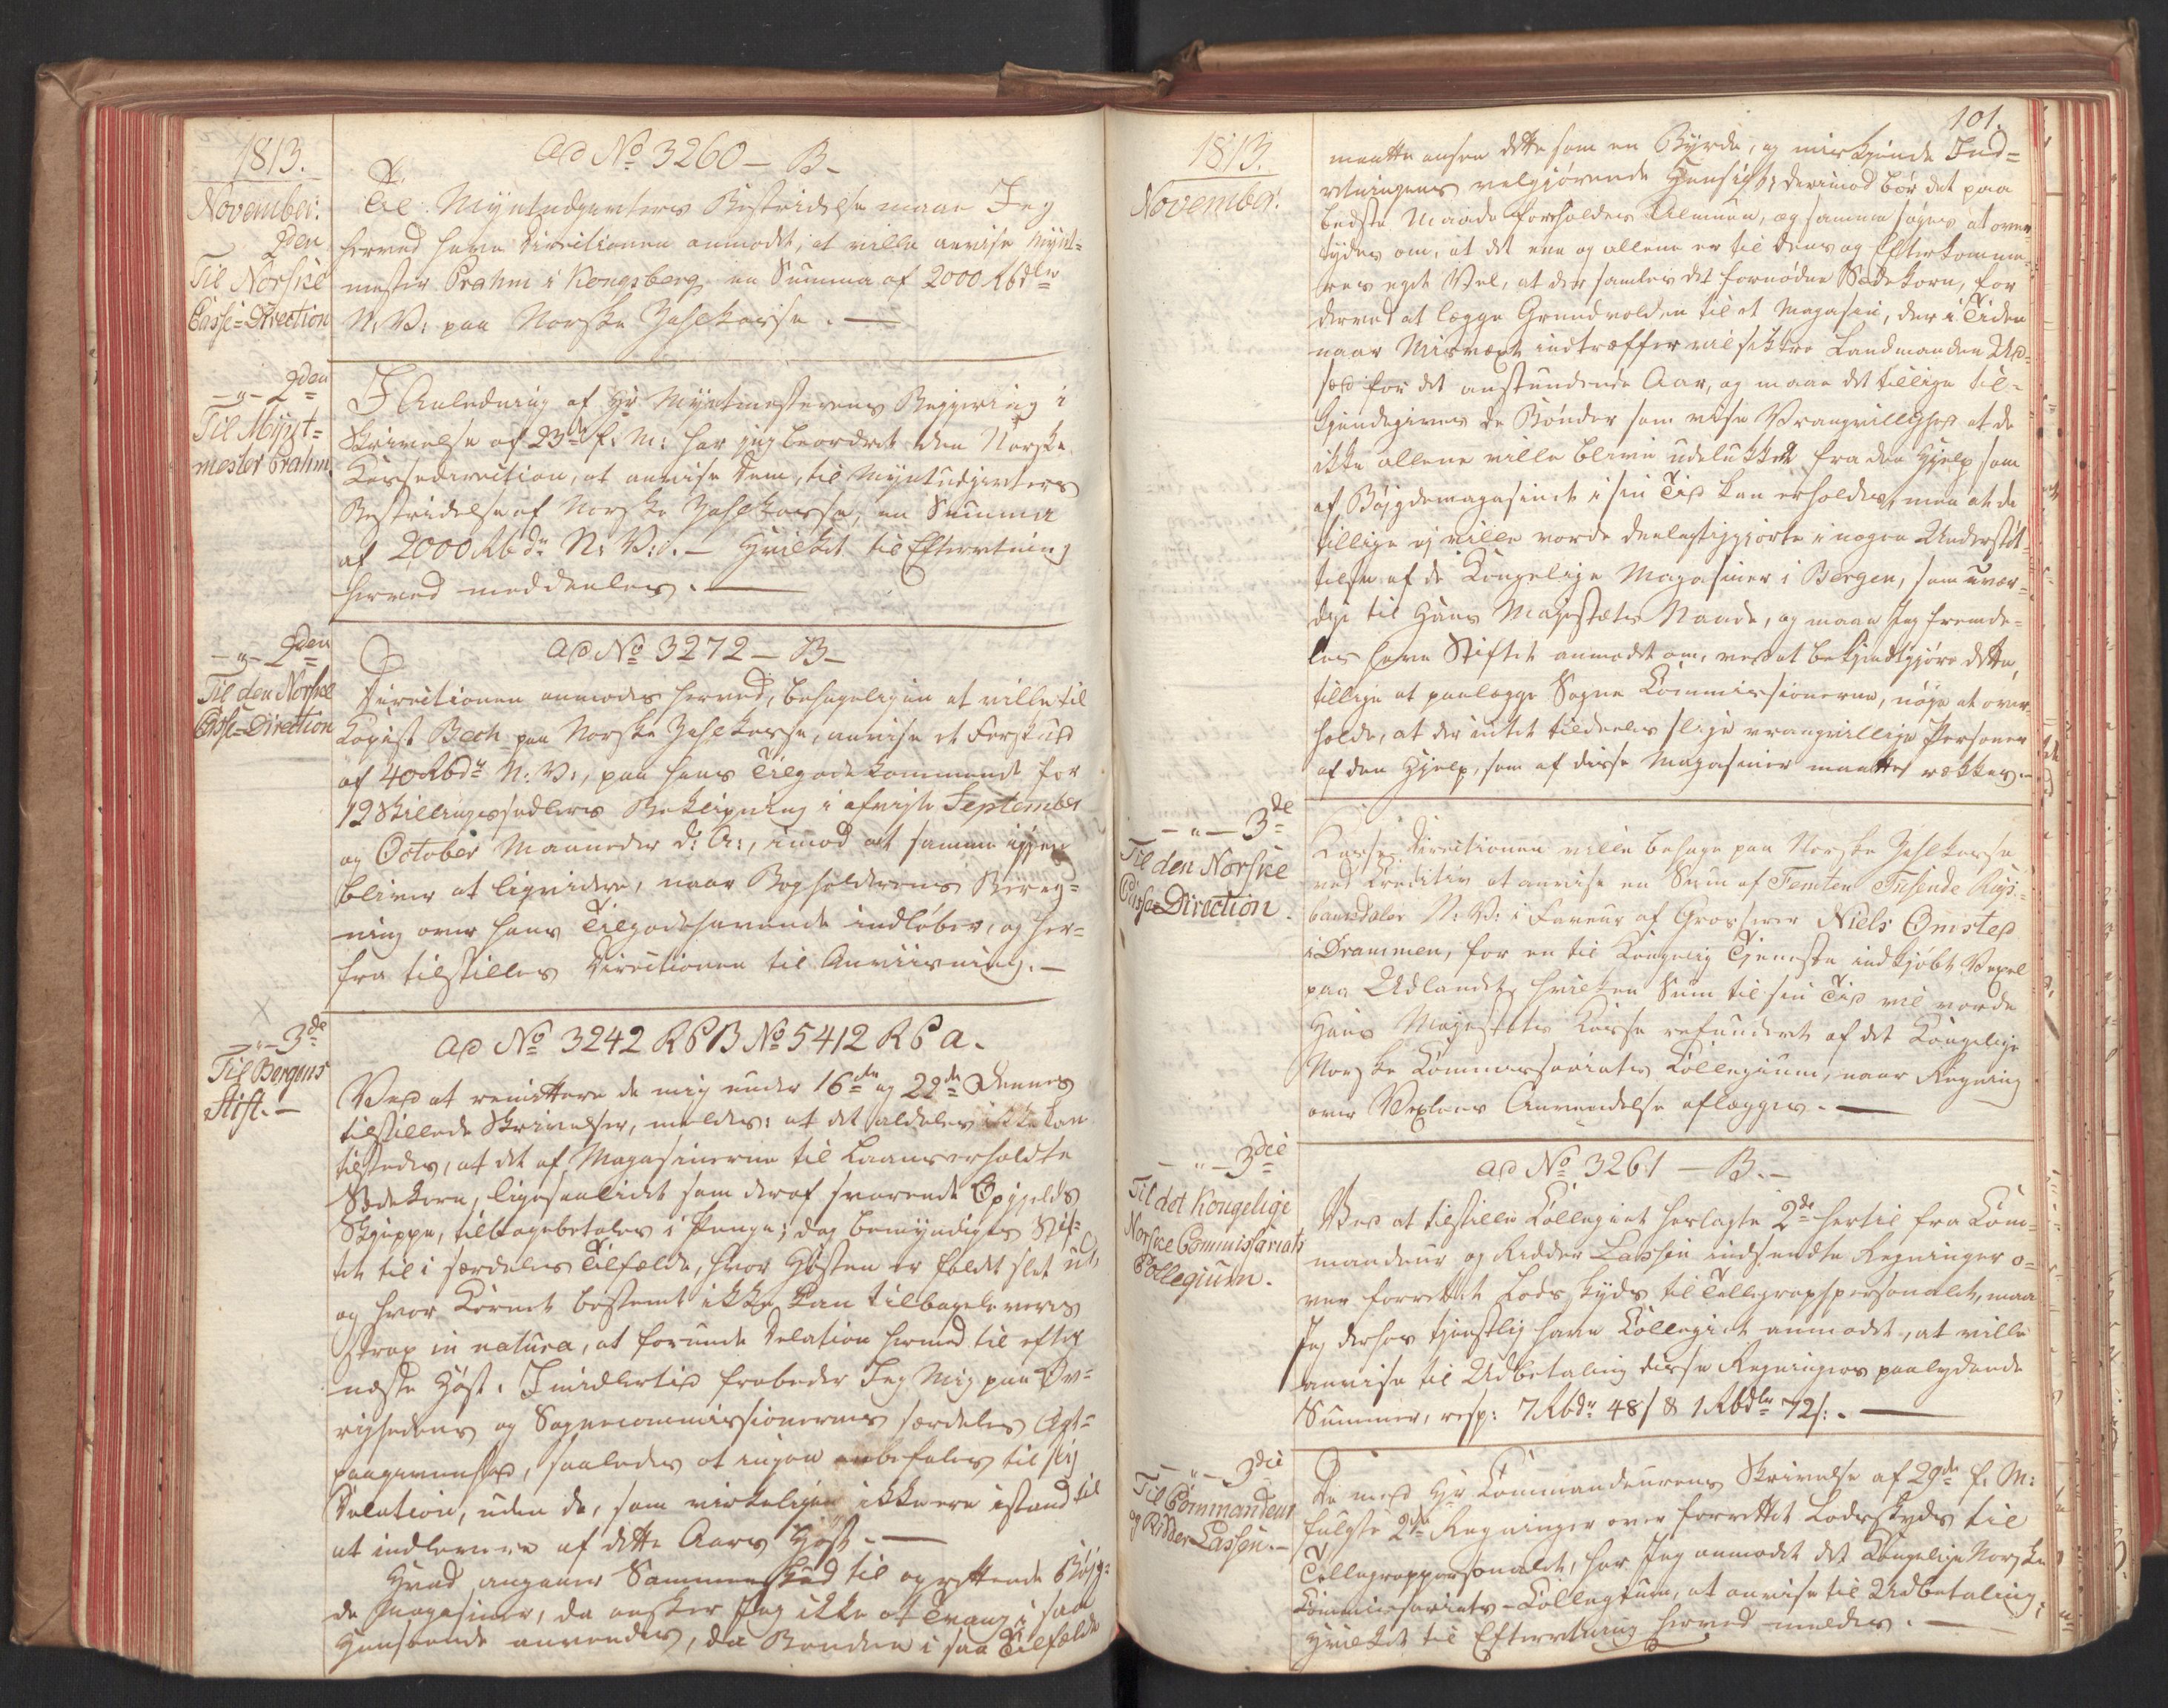 1813.
November.
2den
Til Norske
Casse-Direction
ad No 3260 - B -
Til Myntudgivters Bestridelse maae Jeg
herved have Directionen anmodet, at ville anvise Mynt-
mester Prahm i Kongsberg en Summa af 2000 Rbdlr
N: V: paa Norske Zahlkasse. —
- " - 2den
Til Mynt-
mester Prahm
I Anledning af Hr Myntmesterens Begjering i
Skrivelse af 23de f: M: har jeg beordret den Norske
Cassedirection, at anvise Dem, til Myntudgivters
Bestridelse af Norske Zahlkasse, en Summa
af 2000 Rbdr N: V: . — Hvilket til Efterretning
herved meddeeles. —
- " - 2den
Til den Norske
Casse-Direction
ad No 3272 - B -
Directionen anmodes herved, behageligen at ville til
Copist Bech paa Norske Zahlkasse, anvise et Forskud
af 40 Rbdr N: V:, paa hans Tilgodekommende for
12 Skillingssedlers Beklipning i afvigte September
og October Maaneder d: A:, imod at samme igjen
bliver at liqvidere, naar Bogholderens Bereg-
ning over hans Tilgodehavende indløber, og her-
fra tilstilles Directionen til Anviisning. —
- " - 3de
Til Bergens
Stift. —
ad No 3242 RCB No 5412 RC a.
Ved at remittere de mig under 16de og 22de dennes
tilstillede Skrivelser, meldes: at det aldeles ikke kan
tilstedes, at det af Magasinerne til Laans erholdte
Sædekorn, ligesaalidet som deraf svarende Opgjelds
Skjeppe, tilbagebetales i Penge; dog bemyndiges Stif-
tet til i særdeles Tilfælde, hvor Høsten er faldet slet ud,
og hvor Kornet bestemt ikke kan tilbageleveres
strax in natura, at forunde Dilation hermed til efter
næste Høst. Imidlertid frabeder Jeg Mig paa Øv-
righedens og Sognecommissionernes særdeles Agt-
paagivenhed, saaledes at ingen anbefales til slig
Dilation, uden de, som virkeligen ikke ere istand til
at indlevere af dette Aars Høst. —
Hvad angaaer Sammenskud til oprettende Bøjg-
de Magasiner, da ønsker Jeg ikke at Tvang i saa
Henseende anvendes, da Bonden i saa Tilfælde
101.
1813.
November.
maatte ansee dette som en Byrde, og miskjende Ind-
retningens velgjørende Hensigt; derimod bør det paa
bedste Maade foreholdes Almuen, og samme søges at over-
tydes om, at det ene og allene er til dens og Efterkomme-
res eget Vel, at der samles det fornødne Sædekorn, for
derved at lægge Grundvolden til et Magasin, der i Tiden
naar Misvæxt indtræffer vil sikkre Landmanden Ud-
sæd for det anstundende Aar, og maae det tillige til-
kjendegives de Bønder som viise Vrangvillighed at de
ikke allene ville blive udelukket fra den Hjelp som
af Bøjgdemagasinet i sin Tid kan erholdes, men at de
tillige ej ville vorde deelagtiggjorte i nogen Understøt-
telse af de Kongelige Magasiner i Bergen, som uvær-
dige til Hans Majestæts Naade, og maae Jeg fremde-
les have Stiftet anmodet om, ved at bekjendtgjøre dette,
tillige at paalægge Sogne Commissionerne, nøje at over-
holde, at der intet tildeeles slige vrangvillige Personer
af den Hjelp, som af disse Magasiner maatte rækkes. —
- " - 3de
Til den Norske
Casse-Direction
Casse-Directionen ville behage paa Norske Zahlkasse
ved Creditiv at anvise en Sum af Femten Tusende Rigs-
bankdaler N: V: i Faveur af Grosserer Niels Omsted
i Drammen, for en til Kongelig Tjeneste indkjøbt Vexel
paa Udlandet, hvilken Sum til sin Tid vil vorde
Hans Majestets Kasse refunderet af det Kongelige
Norske Commissariats Collegium, naar Regning
over Vexlens Anvendelse aflægges. —
- " - 3die
Til det Kongelige
Norske Commissariats
Collegium.
ad No 3261 - B. -
Ved at tilstille Collegiet hoslagte 2de hertil fra Com-
mandeur og Ridder Lassen indsendte Regninger o-
ver forrettet Lods Skyds til Tellegraphpersonalet, maa
Jeg derhos tjenstlig have Collegiet anmodet, at ville
anvise til Udbetaling disse Regningers paalydende
Summer, resp: 7 Rbdr 48 s & 1 Rbdlr 72 s: . —
- " - 3die
Til Commandeur
og Ridder Lassen. —
De med Hr Commandeurens Skrivelse af 29de f: M:
fulgte 2de Regninger over forrettet Lodsskyds til
Tellegrappersonalet, har Jeg anmodet det Kongelige Norske
Commissariats-Collegium, at anvise til Udbetaling;
Hvilket til Efterretning herved meldes. —